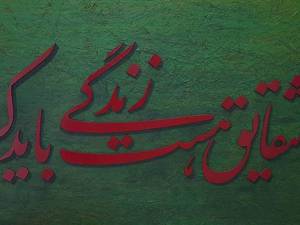 شقایق هست زندگی باید